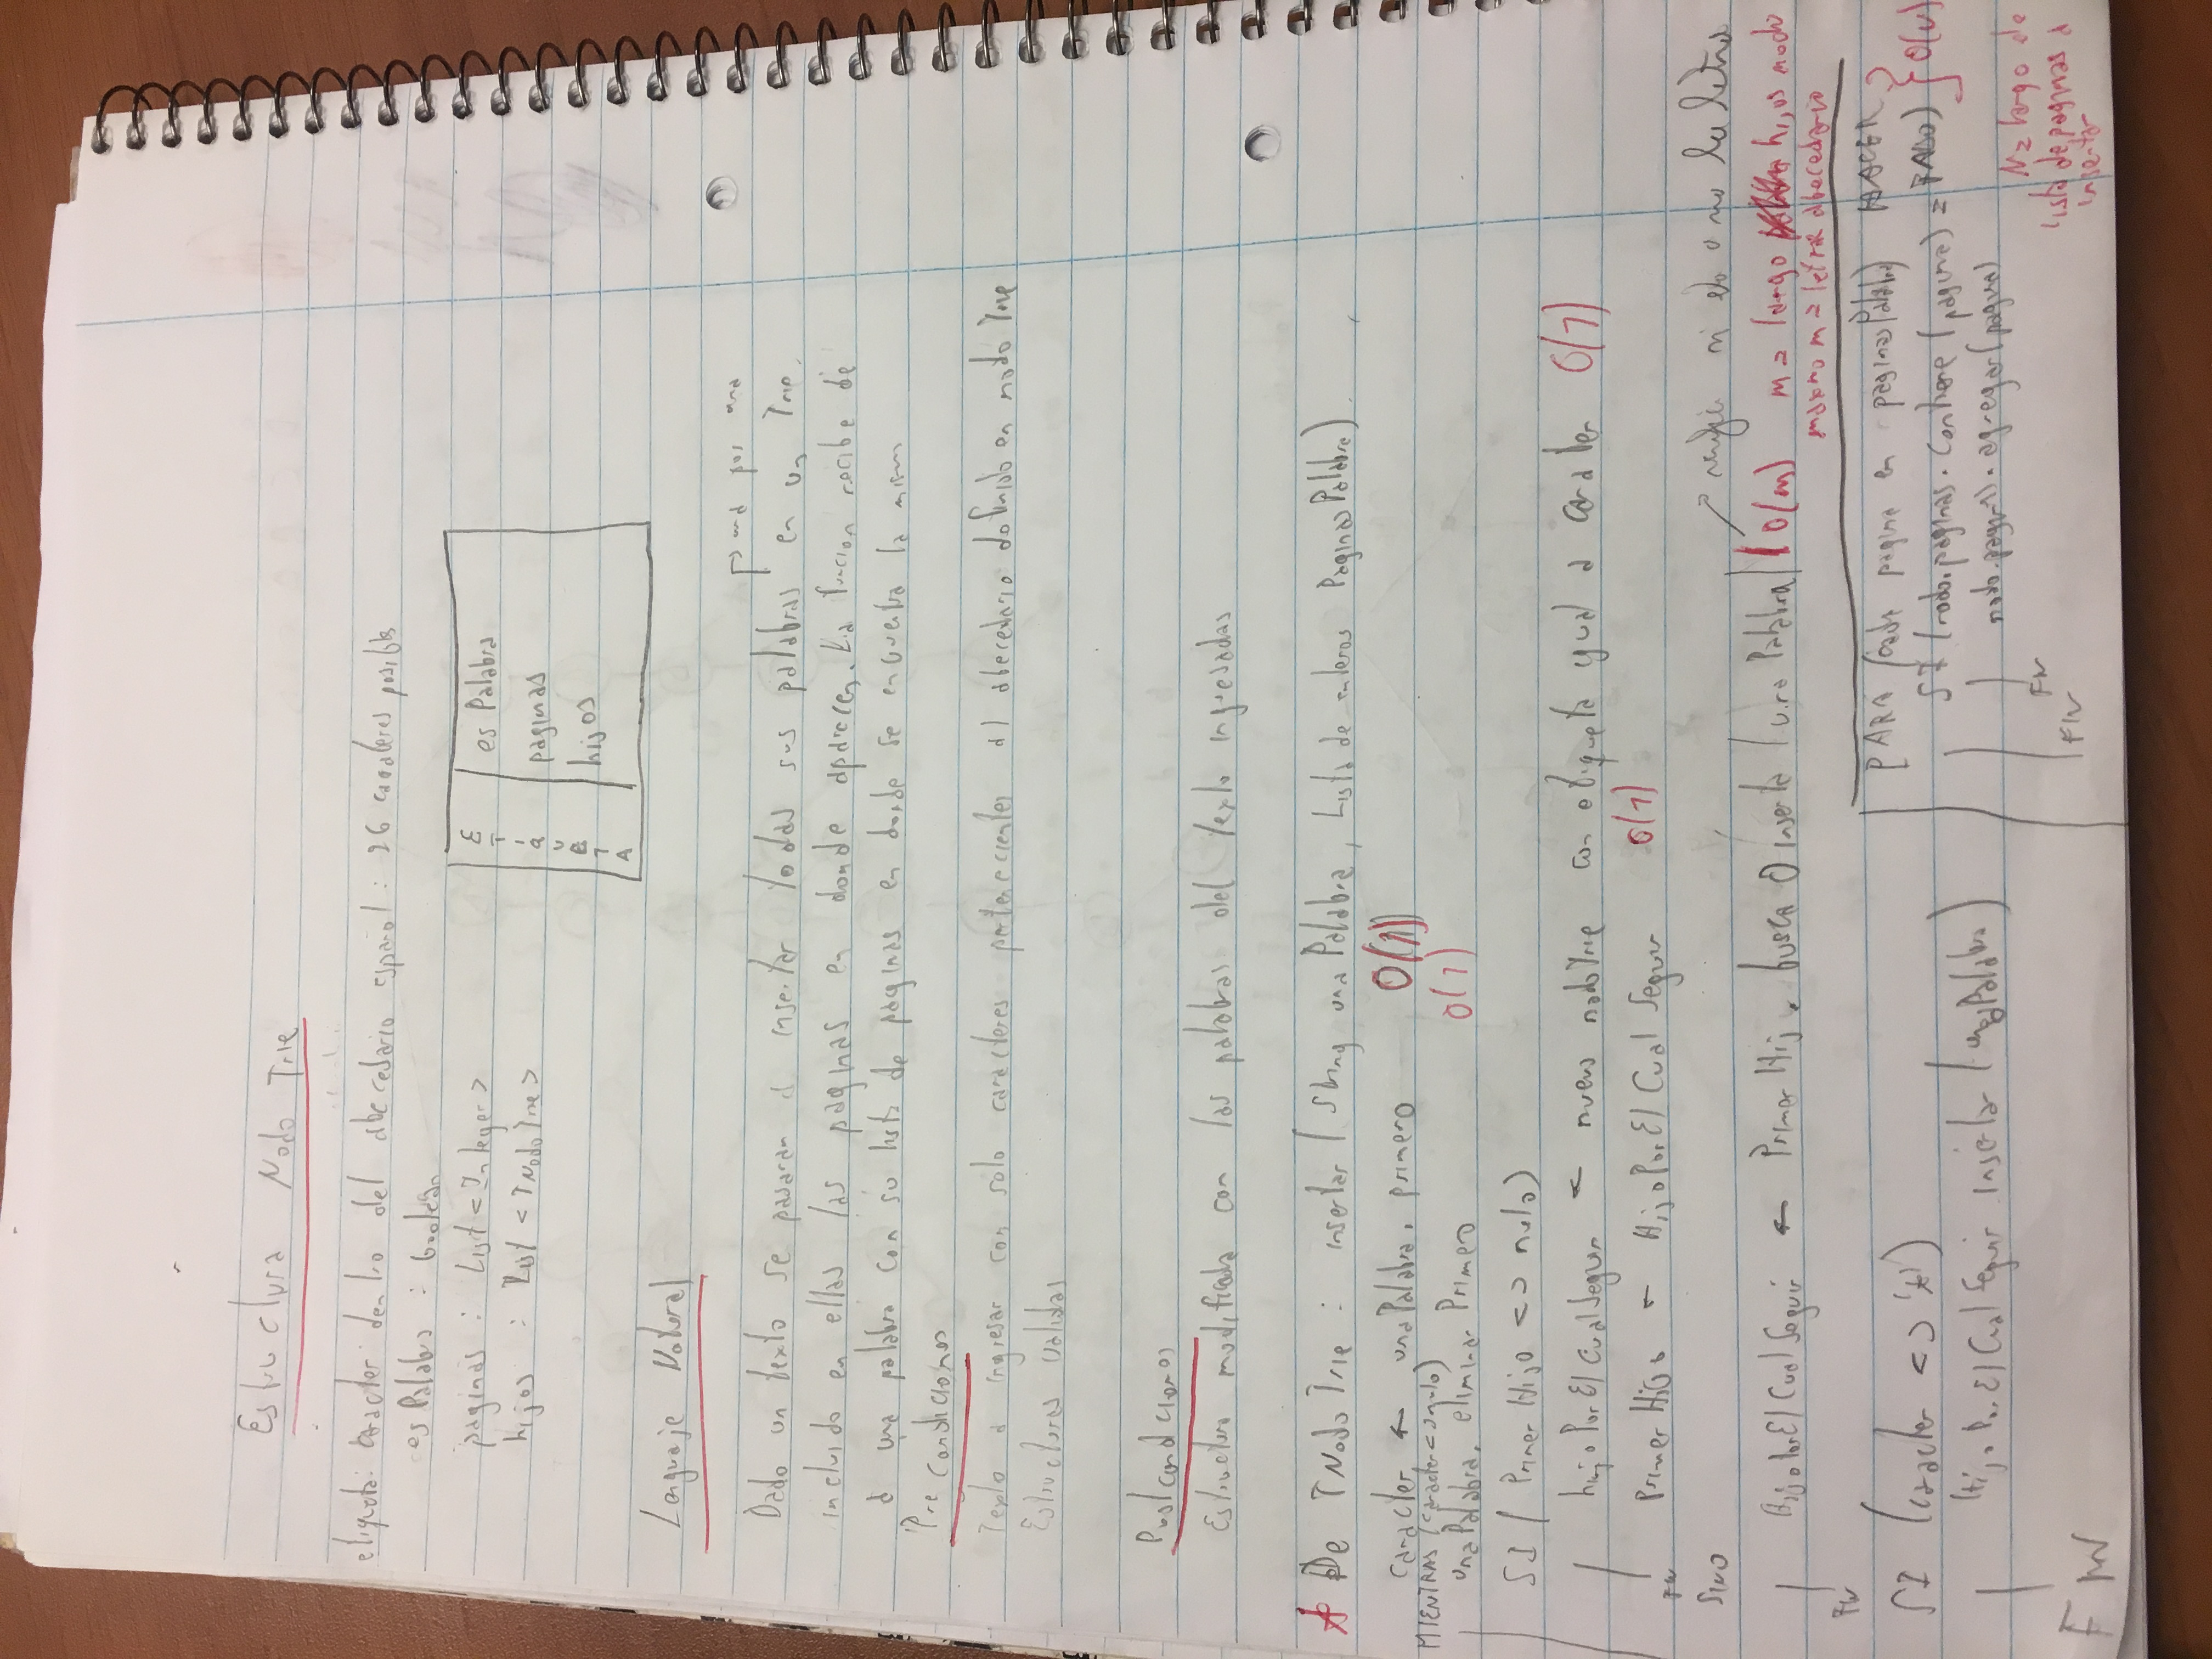 Estructura Nodo Trie
etiqueta: caracter dentro del abecedario español: 26 caracteres posibles
esPalabra : boolean
paginas : List <Integer>
hijos : List <TNodoTrie>
ETIQUETA
esPalabra
paginas
hijos
Lenguaje Natural
una por una
Dado un texto se pasaran a insertar todas sus palabras en un Trie.
incluido en ellas las paginas en donde aparecen. La funcion recibe de
a una palabra con su lista de paginas en donde se encuentra la misma
Precondiciones
Texto a ingresar con solo caracteres pertenecientes al abecedario definido en nodo Trie
Estructuras validas
Postcondiciones
Estructura modificada con las palabras del texto ingresadas
De TNodoTrie : insertar (String unaPalabra, Lista de enteros PaginasPalabra)
caracter ← unaPalabra. primero O(1)
MIENTRAS (caracter <> nulo)
unaPalabra. eliminar Primero O(1)
SI (PrimerHijo <> nulo)
hijoPorElCualSeguir ← nuevo nodoTrie con etiqueta igual a caracter O(1)
PrimerHijo ← HijoPorElCualSeguir O(1)
FIN
SINO
la letra
HijoPorElCualSeguir ← PrimerHijo. buscaOinserta (unaPalabra) O(m) m = largo hijos nodo
maximo m = letras abecedario
FIN
SI (caracter <> '*')
HijoPorElCualSeguir insertar (unaPalabra)
FIN
PARA (cada pagina en paginasPalabra) HACER
SI (nodo.paginas.contiene (pagina) = FALSO) O(N)
nodo.paginas.agregar(pagina)
FIN
FIN
N = largo de
lista de paginas a
insertar